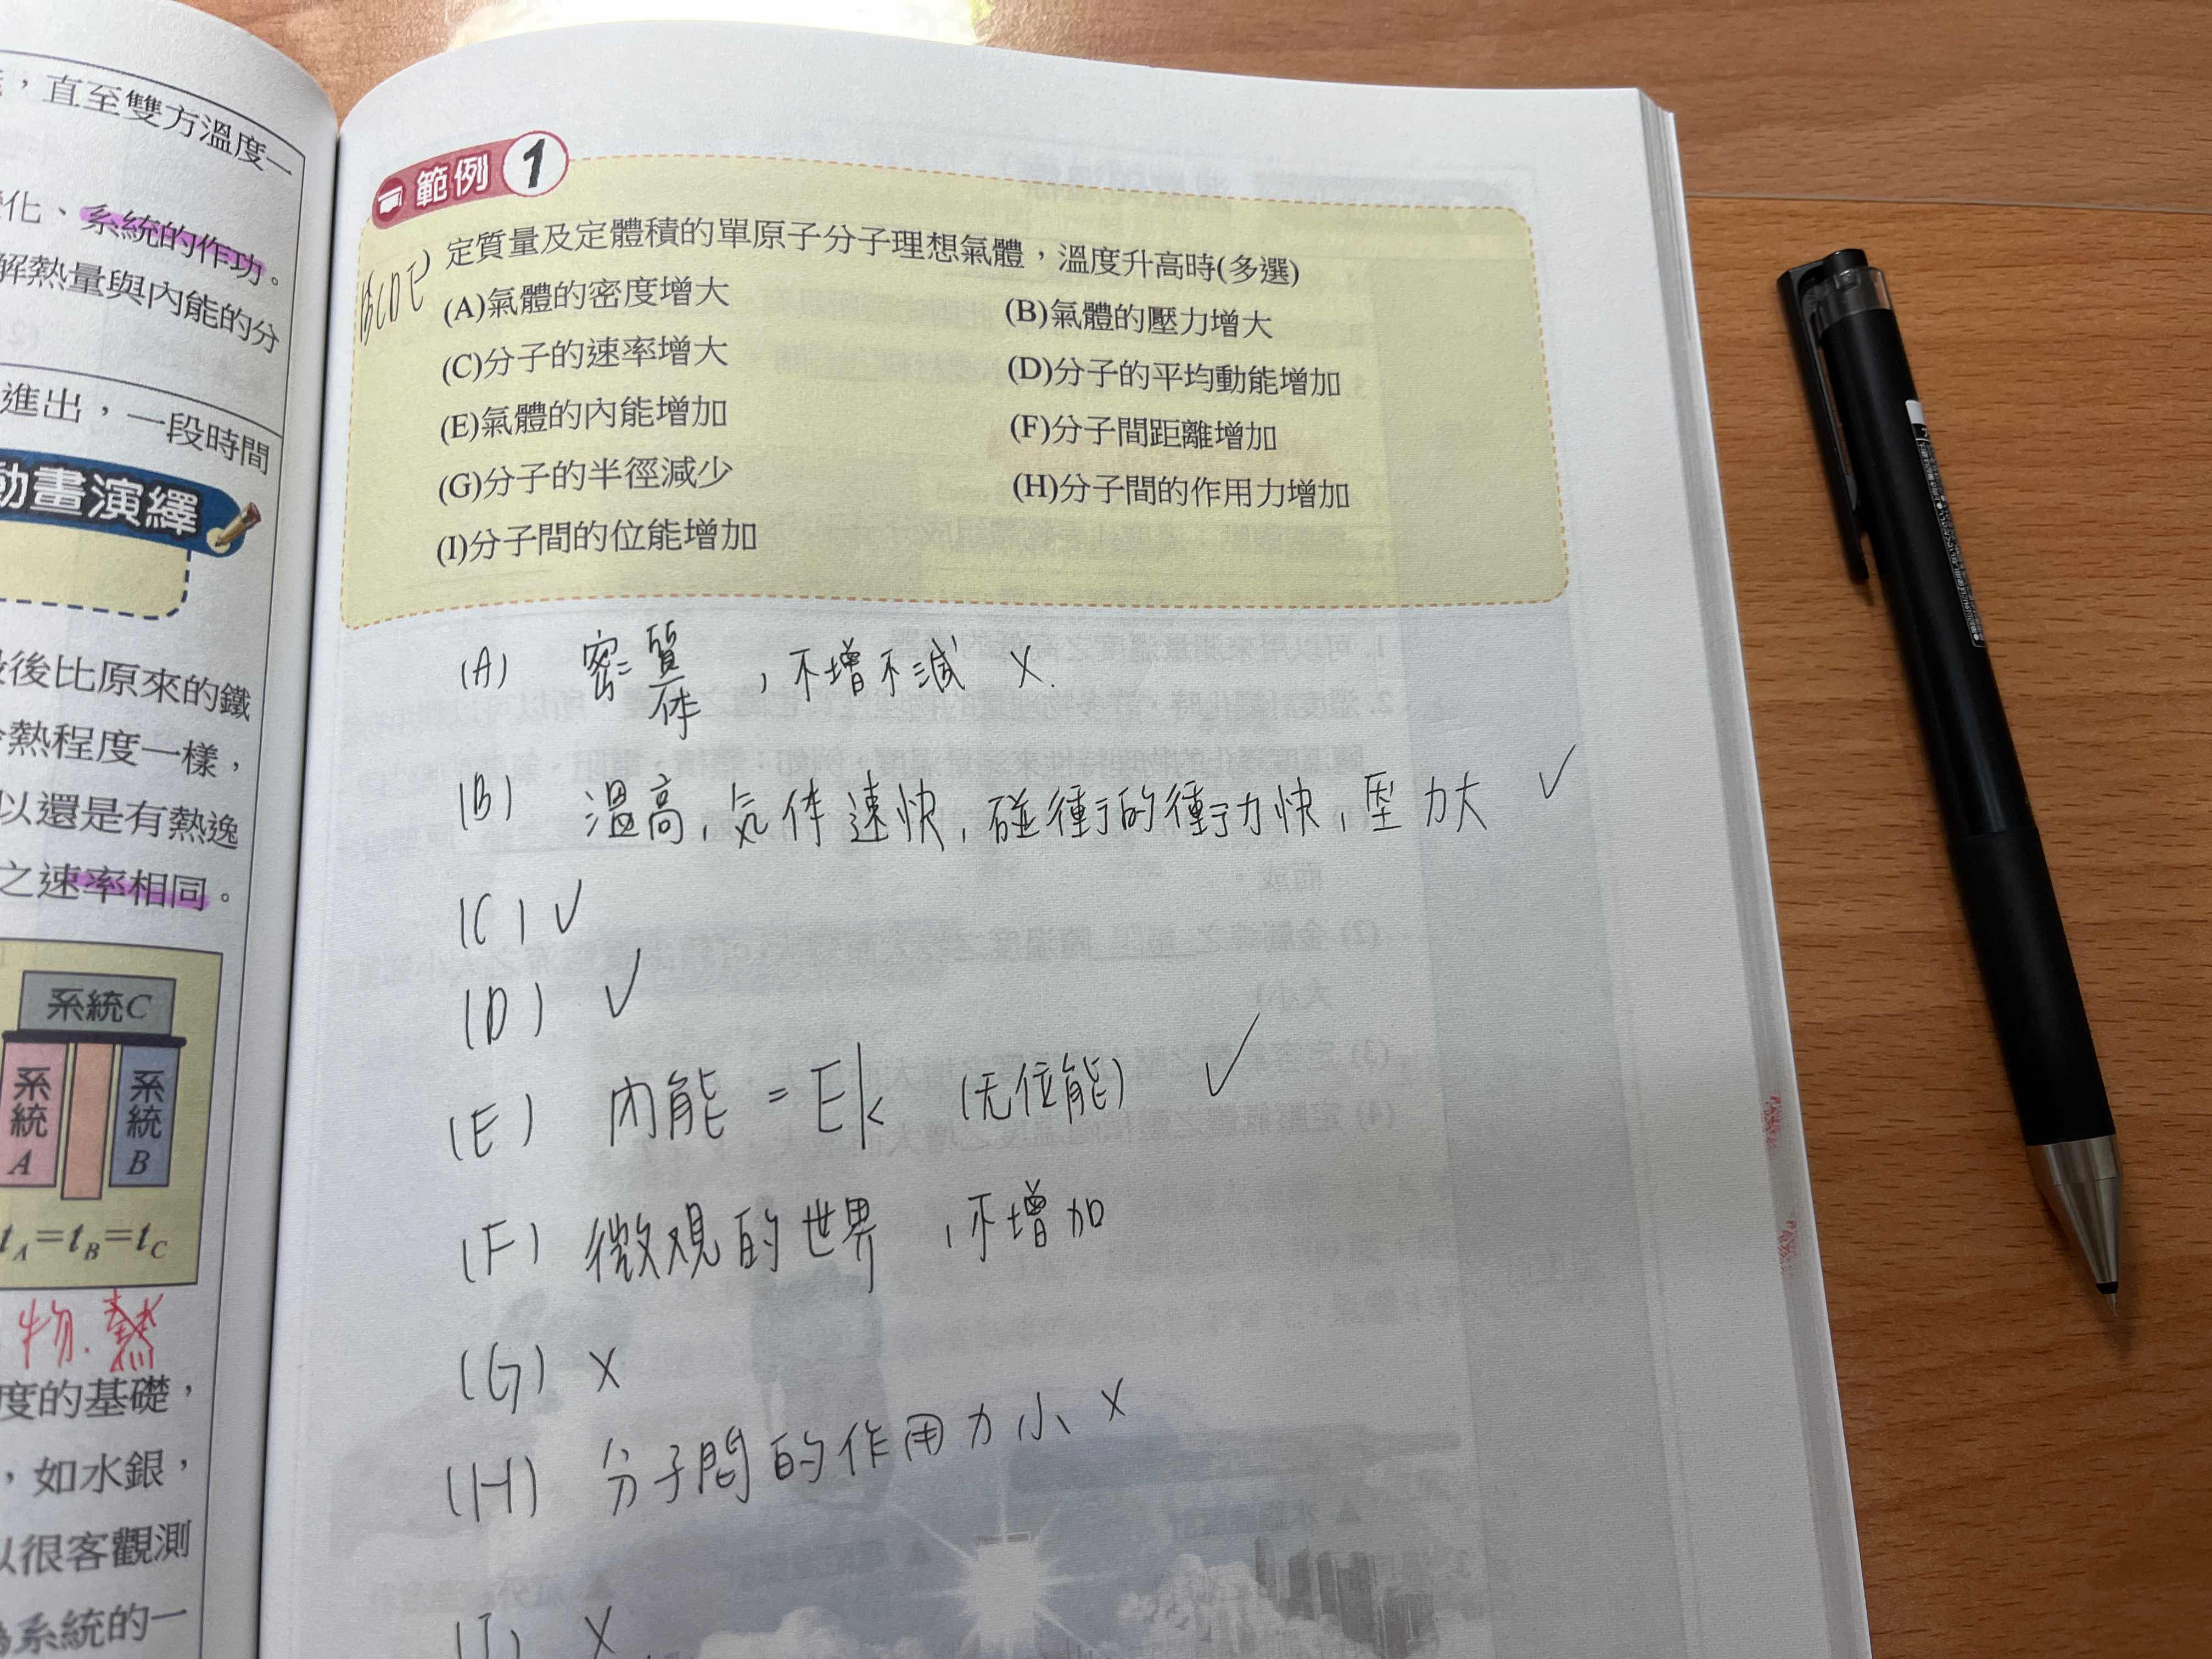 ，直至雙方溫度一
化、系統的作功。
解熱量與內能的分
進出，一段時間
動畫演繹
後比原來的鐵
熱程度一樣，
以還是有熱逸
之速率相同。
系統C
系統A
系統B
tA=tB=tC
物.熱
度的基礎，
，如水銀，
以很客觀測
系統的一
範例 1
BCDE
定質量及定體積的單原子分子理想氣體，溫度升高時(多選)
(A)氣體的密度增大 (B)氣體的壓力增大
(C)分子的速率增大 (D)分子的平均動能增加
(E)氣體的內能增加 (F)分子間距離增加
(G)分子的半徑減少 (H)分子間的作用力增加
(I)分子間的位能增加
(A) 密=質/体，不增不減 ×.
(B) 溫高，気体速快，碰衝的衝力快，壓力大 ✓
(C) ✓
(D) ✓
(E) 內能 = Ek (无位能) ✓
(F) 微观的世界，不增加
(G) ×
(H) 分子間的作用力小 ×
(I) ×